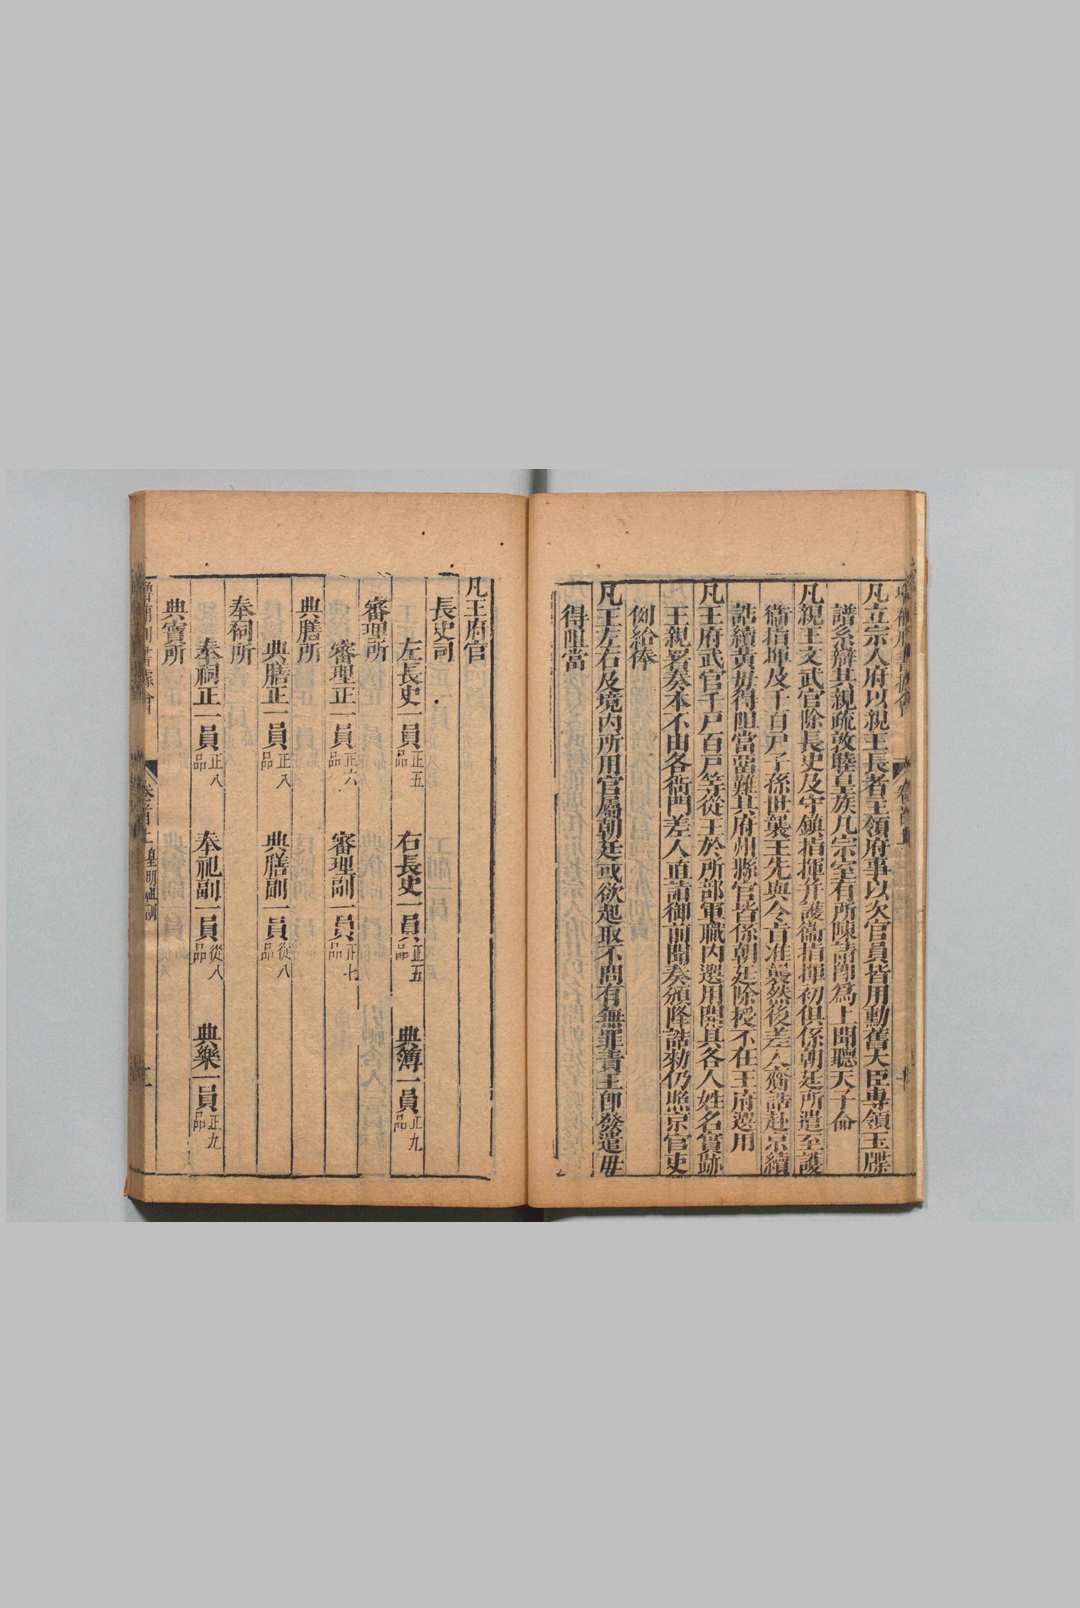 凡立宗人府以親王長者主領府事以次官員皆用勳舊大臣專領玉牒
譜系辨其親疏敦睦皇族凡宗室有所陳請卽爲上聞聽天子命
凡親王文武官除長史及守鎮指揮并護衞指揮初俱係朝廷所遣至護
衞指揮及千百戶子孫世襲王先與令旨准襲然後差人齎誥赴京續
誥續黃毋得阻當留難其府州縣官皆係朝廷除授不在王府選用
凡王府武官千戶百戶等從王於所部軍職內選用開具各人姓名實跡
王親署奏本不由各衙門差人直詣御前聞奏頒降誥勑仍照京官支
例給俸
凡王左右及境內所用官屬朝廷或欲起取不問有無罪責王卽發遣毋
得阻當
凡王府官
長史司
左長史一員正五品 右長史一員正五品 典簿一員正九品
審理所
審理正一員正六品 審理副一員正七品
典膳所
典膳正一員正八品 典膳副一員從八品
奉祠所
奉祠正一員正八品 奉祀副一員從八品 典樂一員正九品
典寶所